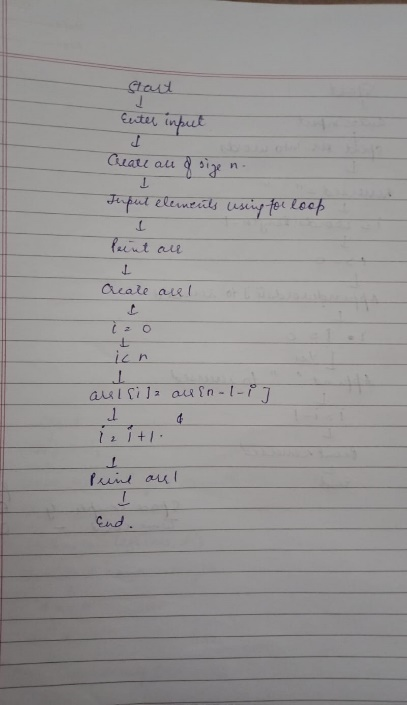 Start
↓
Enter input
↓
Create arr of size n.
↓
Input elements using for loop
↓
Print arr
↓
Create arr1
↓
i = 0
↓
i < n
↓
arr1[i] = arr[n-1-i]
↓
i = i+1.
↓
Print arr1
↓
End.